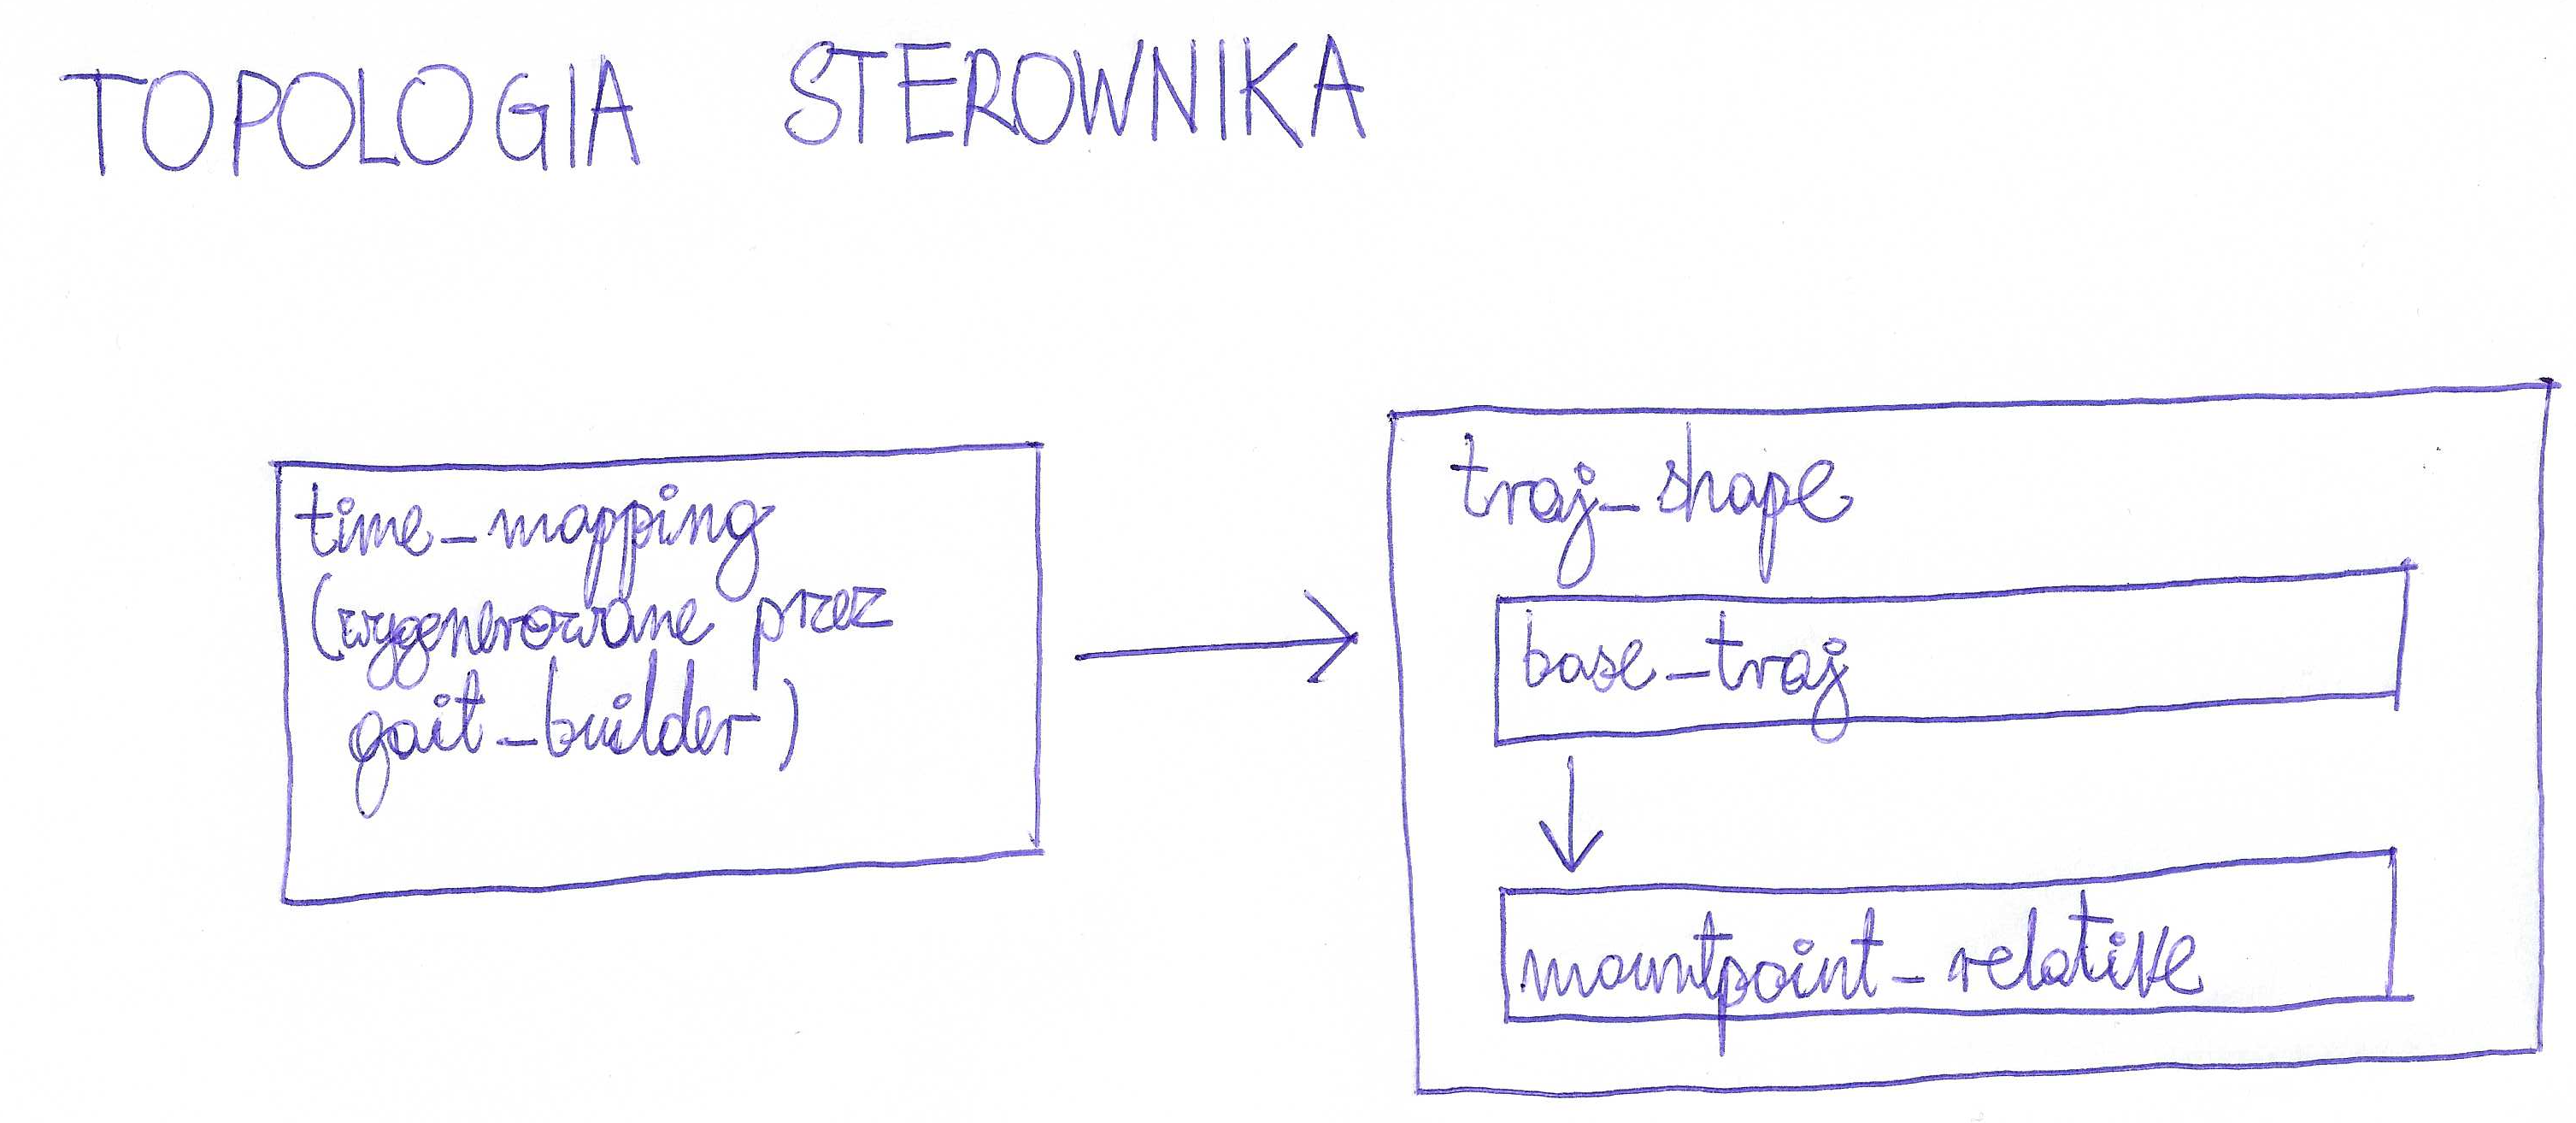 TOPOLOGIA STEROWNIKA
time_mapping
(wygenerowane przez
gait_builder)
traj_shape
base_traj
mountpoint_relative